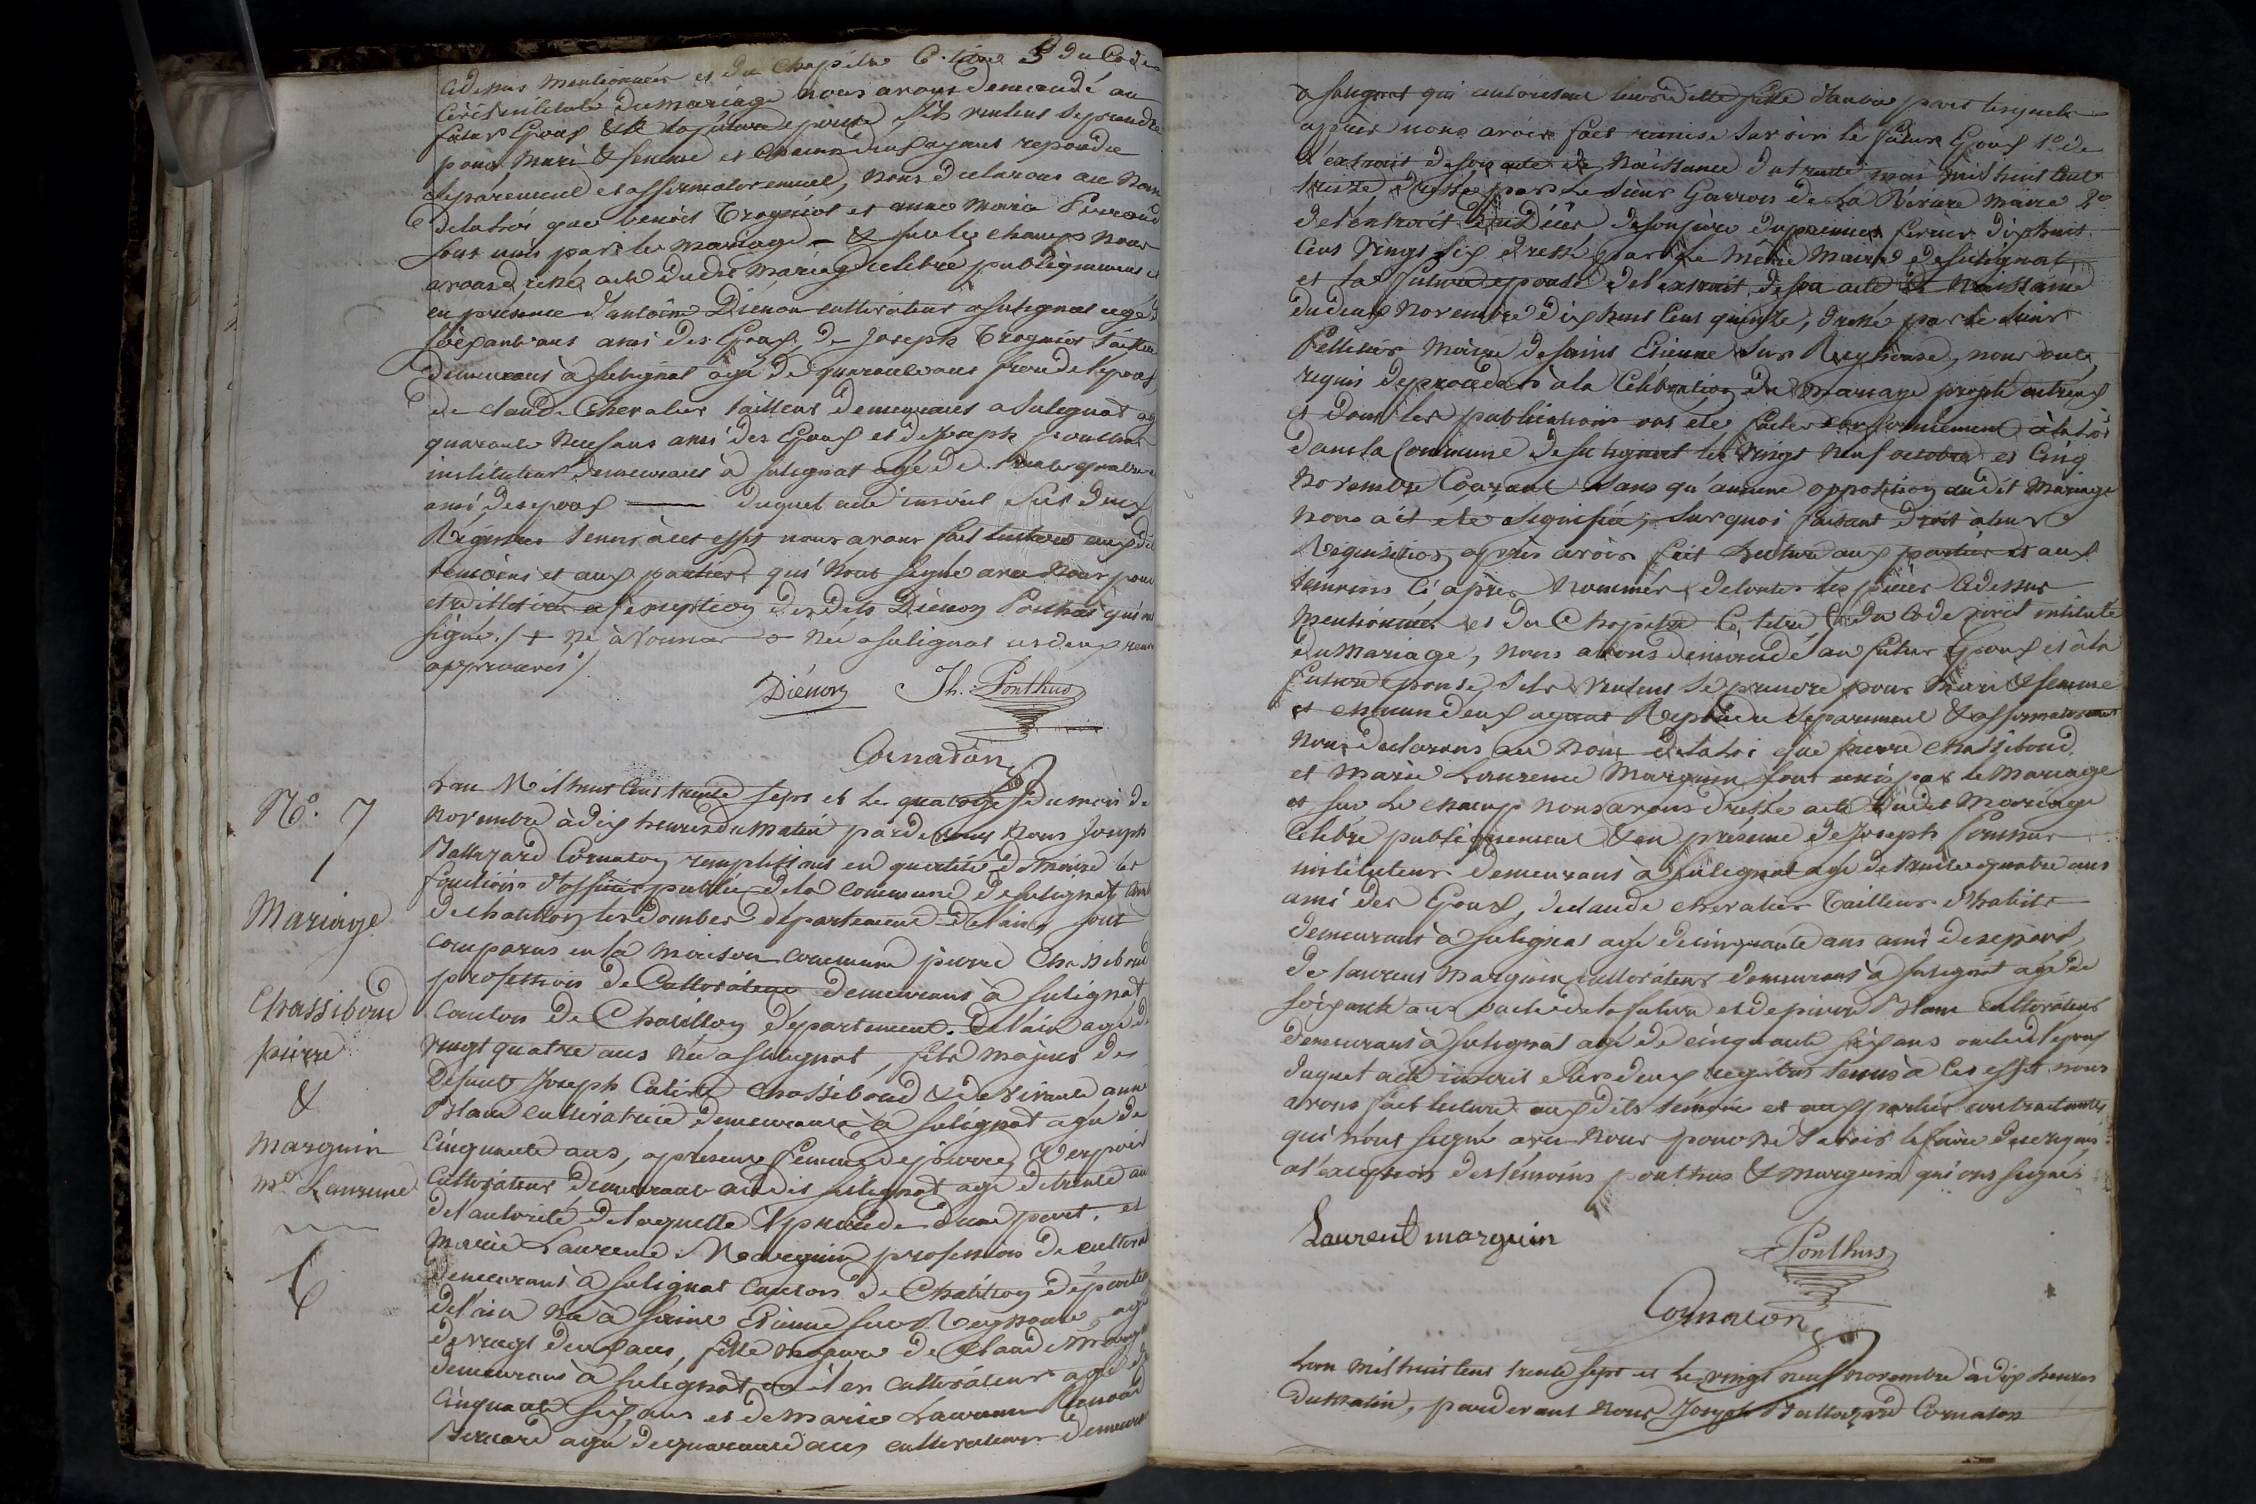 cidessus mentionnées et du chapitre 6. titre 5 du Code
Civil intitulé du mariage nous avons demandé au
futur Epoux & à la future épouse s'ils veulent se prendre
pour mari & femme et chacun d'eux ayant repondu
séparement et affirmativement, nous déclarons au Nom
de la loi que benoit Trognier et anne marie
sont unis par le mariage - & sur le champs nous
avons dressé acte dudit mariage célébré publiquement
en présence d'antoine Diénon cultivateur à sulignat agé
soixante ans ami des Epoux, de Joseph Trognier
demeurant à sulignat agé de quarante ans frere de l'epoux
de claude Chevalier tailleur demeurant a Sulignat
quarante neuf ans ami des Epoux et de Joseph ponthus
instituteur demeurant à sulignat agé de trente quatre
ami des epoux —— duquel acte inscrit sur deux
Régistres tenus à cet effet nous avons fait lecture auxdits
témoins et aux parties qui n'ont signé avec Nous pour
etre illetrés a l'exception desdits Diénon Ponthus qui ont
signé./ + né à Vonnas o née a sulignat
approuvés /.
Diénon Jh. Ponthus
Cornaton
N°. 7
Mariage
Chassiboud
pierre
&
Marguin
mie Laurence
L'an Mil huit Cent trente sept et le quatorze du mois de
Novembre à dix heures du Matin pardevant Nous Joseph
Baltazard Cornaton remplissant en qualité de Maire les
fonctions d'officier public de la commune de sulignat
de chatillon les dombes département de l'ain, sont
comparus en la maison commune pierre Chassiboud
profession de Cultivateur demeurant à sulignat
canton de Chatillon département de l'ain agé de
vingt quatre ans né a sulignat, fils majeur de
Défunt Joseph Chassiboud & de vivante anne
Blanc cultivatrice demeurante à sulignat agée de
Cinquante ans, apresent femme de pierre
Cultivateur demeurant audit sulignat agé de trente
de l'autorité de laquelle il procède d'une part, et
Marie Laurence Marguin profession de
demeurant à sulignat canton de Chatillon
de l'ain née à saint Etienne sur Reyssouze
de vingt deux ans, fille majeure de Claude
demeurant à sulignat cultivateur agé
Cinquante six ans et de Marie Laurence
Bernard agée de quarante ans cultivateurs
à sulignat qui autorisent leur ditte fille d'autre part lesquels
après nous avoir fait remise savoir le futur Epoux 1° de
l'extrait de son acte de Naissance du trente mai mil huit cent
treize dressé par le sieur Garron de la Bévière maire 2°
de l'extrait du Décès de son père du premier fevrier dix huit
cent vingt six dressé par le même Maire de sulignat,
et la future epouse de l'extrait de son acte de Naissance
du deux Novembre dix huit cent quinze, dressé par le sieur
Maire de saint Etienne sur Reyssouze, nous ont
requis de procéder à la célébration du mariage projeté entreux
et dont les publications ont été faites conformément à la loi
dans la commune de sulignat le vingt neuf octobre et cinq
Novembre courant sans qu'aucune opposition audit mariage
nous ait été signifiée, sur quoi faisant droit à leur
Réquisition, après avoir fait lecture aux parties et aux
témoins ci après Nommés de toutes les pièces cidessus
mentionnées et du Chapitre 6, titre 5 du Code civil intitulé
du Mariage, nous avons demandé au futur Epoux et à la
future epouse, s'ils veulent se prendre pour Mari & femme
et chacun d'eux ayant Repondu séparement & affirmativement
Nous déclarons au Nom de la loi que pierre Chassiboud
et Marie Laurence Marguin sont unis par le Mariage
et sur le champ nous avons dressé acte dudit Mariage
célébré publiquement & en presence de Joseph Ponthus
instituteur demeurant à sulignat agé de trente quatre ans
ami des Epoux, de claude chevalier Tailleur d'habits
demeurant à sulignat agé de cinquante ans ami des epoux,
de laurent Marguin cultivateur demeurant à sulignat agé de
soixante ans oncle de la future et de pierre Blanc cultivateur
demeurant à sulignat agé de cinquante six ans oncle de l'epoux
duquel acte inscrit sur deux registres tenus à cet effet nous
avons fait lecture auxdits témoins et aux parties contractantes
qui n'ont signé avec Nous pour ne savoir le faire
a l'exception des témoins ponthus & Marguin qui ont signés
Laurent marguin Ponthus
Cornaton
L'an mil huit cent trente sept et le vingt neuf novembre à dix heures
du Matin, pardevant Nous Joseph Baltazard Cornaton